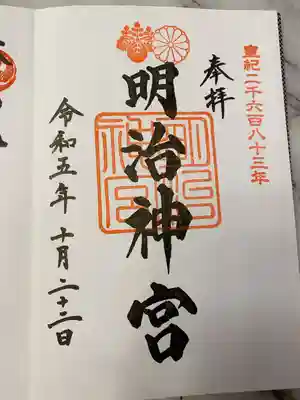 皇紀二千六百八十三年
奉拝
明治神宮
明治神宮
令和五年十月二十二日